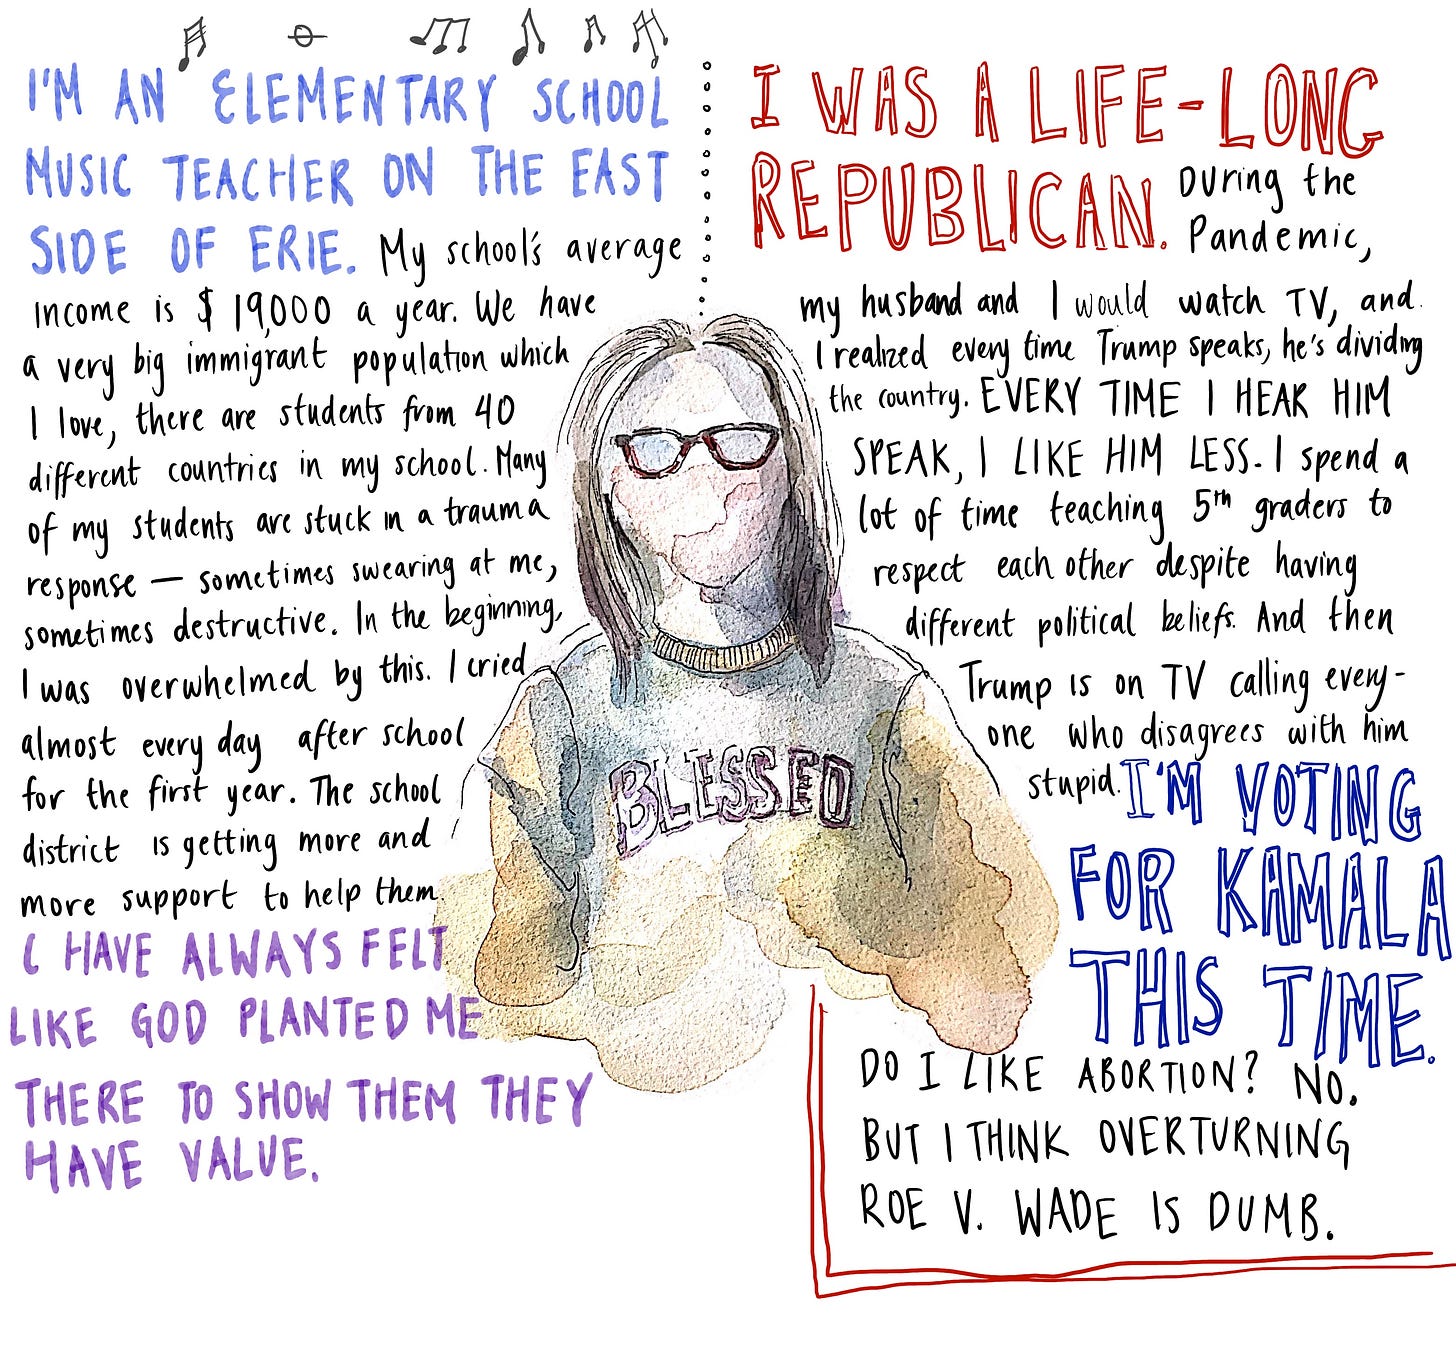 I'M AN ELEMENTARY SCHOOL
MUSIC TEACHER ON THE EAST
SIDE OF ERIE. My school's average
income is $19,000 a year. We have
a very big immigrant population which
I love, there are students from 40
different countries in my school. Many
of my students are stuck in a trauma
response — sometimes swearing at me,
sometimes destructive. In the beginning,
I was overwhelmed by this. I cried
almost every day after school
for the first year. The school
district is getting more and
more support to help them.
I HAVE ALWAYS FELT
LIKE GOD PLANTED ME
THERE TO SHOW THEM THEY
HAVE VALUE.
I WAS A LIFE-LONG
REPUBLICAN. During the
Pandemic,
my husband and I would watch TV, and
I realized every time Trump speaks, he's dividing
the country. EVERY TIME I HEAR HIM
SPEAK, I LIKE HIM LESS. I spend a
lot of time teaching 5th graders to
respect each other despite having
different political beliefs. And then
Trump is on TV calling every-
one who disagrees with him
stupid. I'M VOTING
FOR KAMALA
THIS TIME.
DO I LIKE ABORTION? NO.
BUT I THINK OVERTURNING
ROE V. WADE IS DUMB.
BLESSED